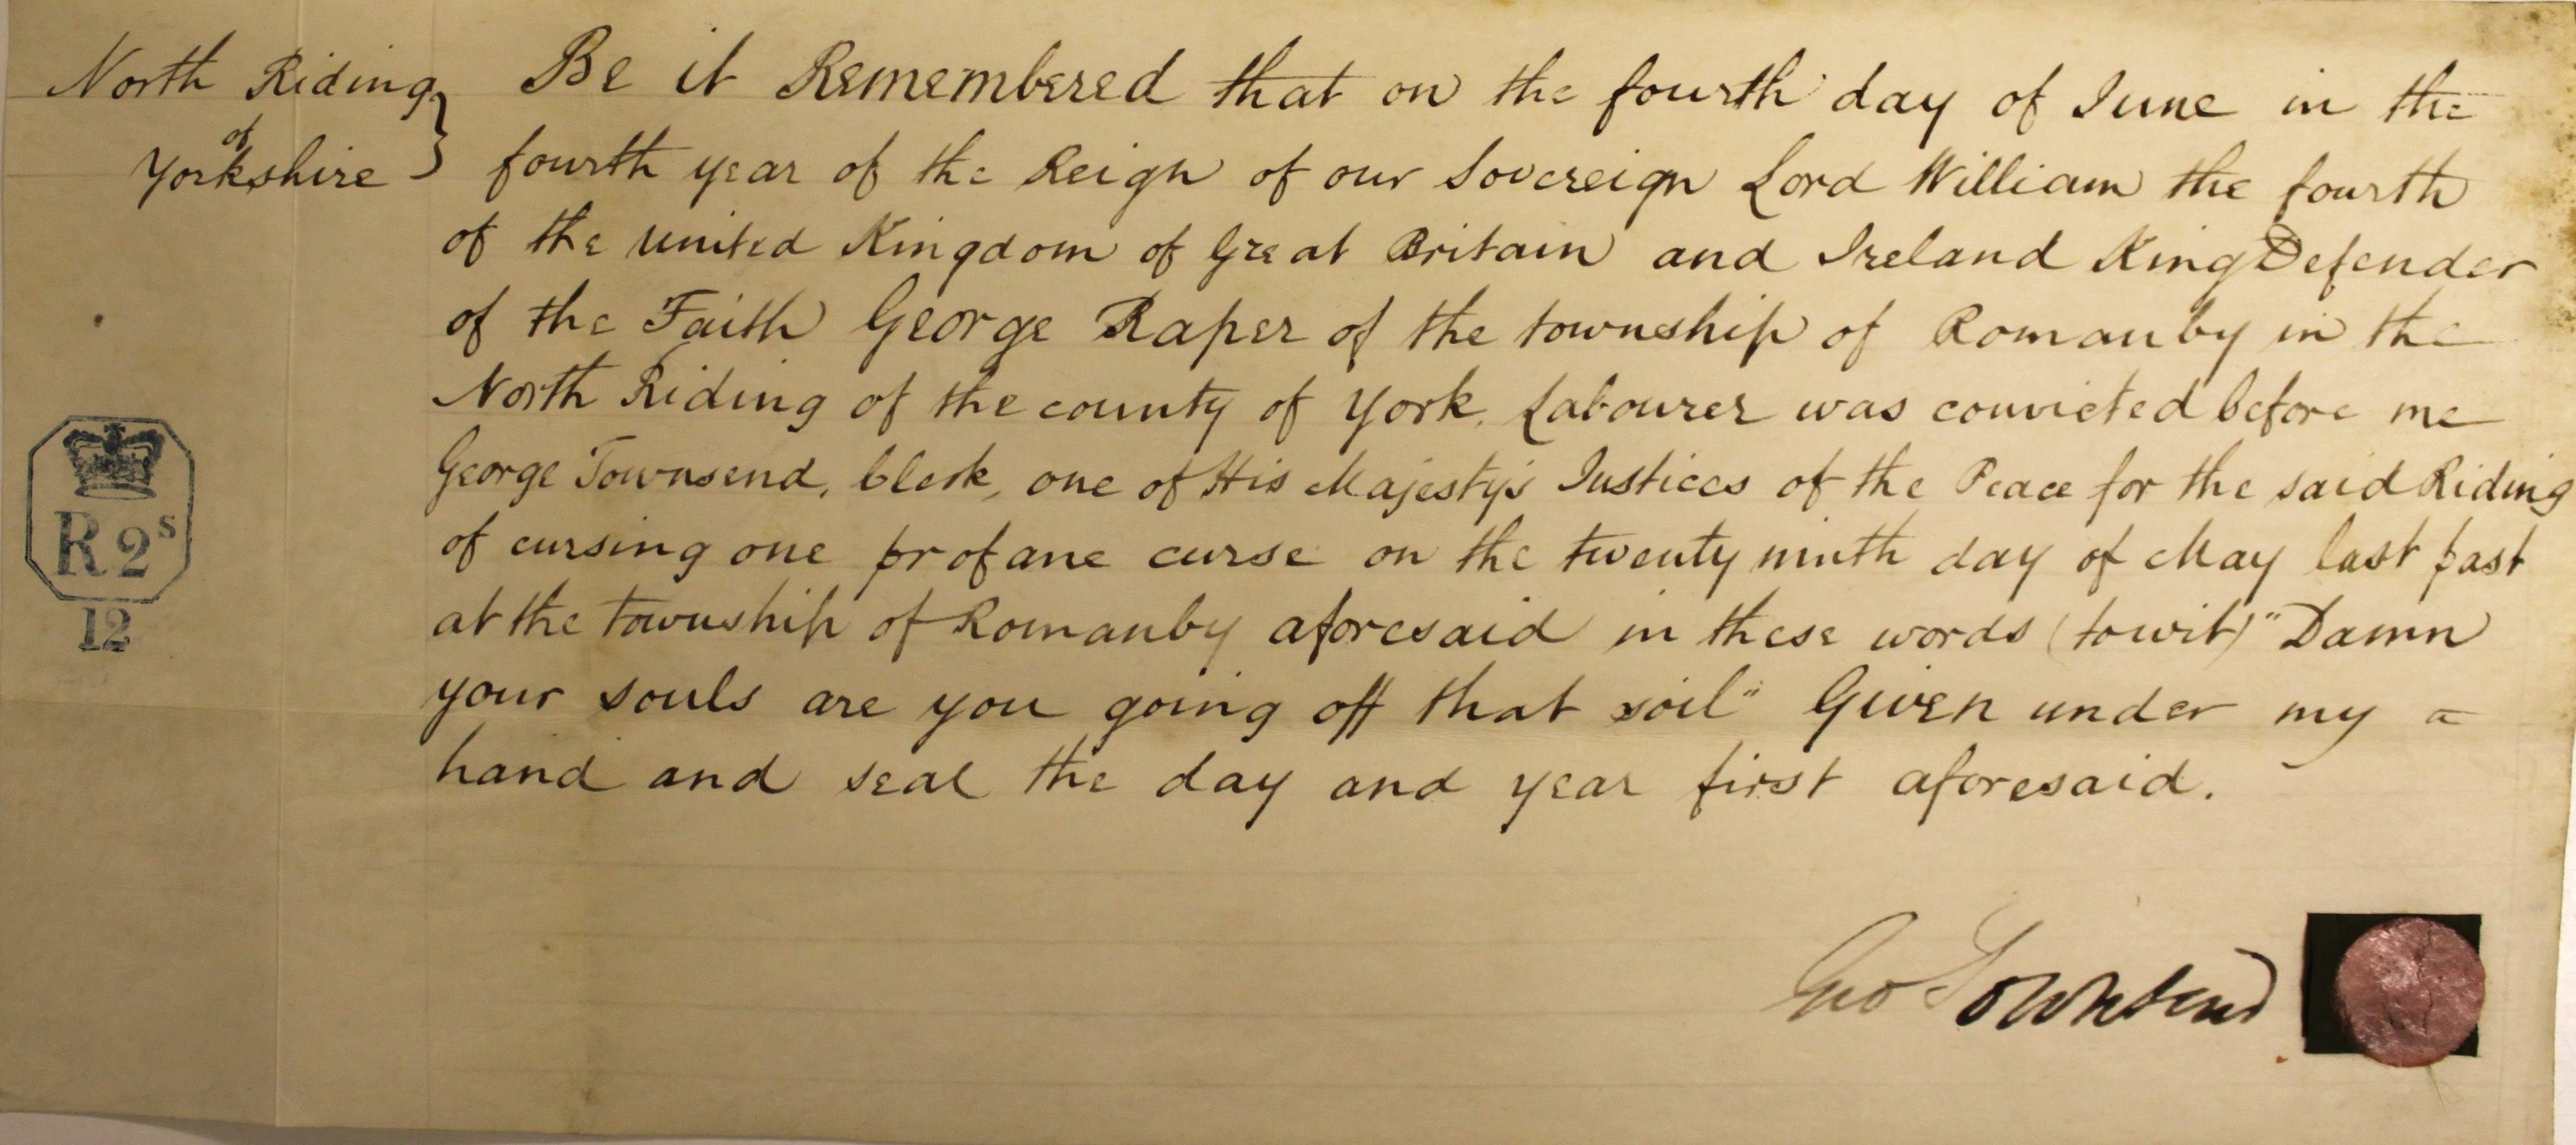 North Riding
of
Yorkshire
Be it Remembered that on the fourth day of June in the
fourth year of the Reign of our Sovereign Lord William the fourth
of the united Kingdom of Great Britain and Ireland King Defender
of the Faith George Raper of the township of Romanby in the
North Riding of the county of York, Labourer was convicted before me
George Townsend, Clerk, one of His Majesty's Justices of the Peace for the said Riding
of cursing one profane curse on the twenty ninth day of May last past
at the township of Romanby aforesaid in these words (to wit) "Damn
your souls are you going off that soil" Given under my
hand and seal the day and year first aforesaid.
R 2s
12
Geo Townsend